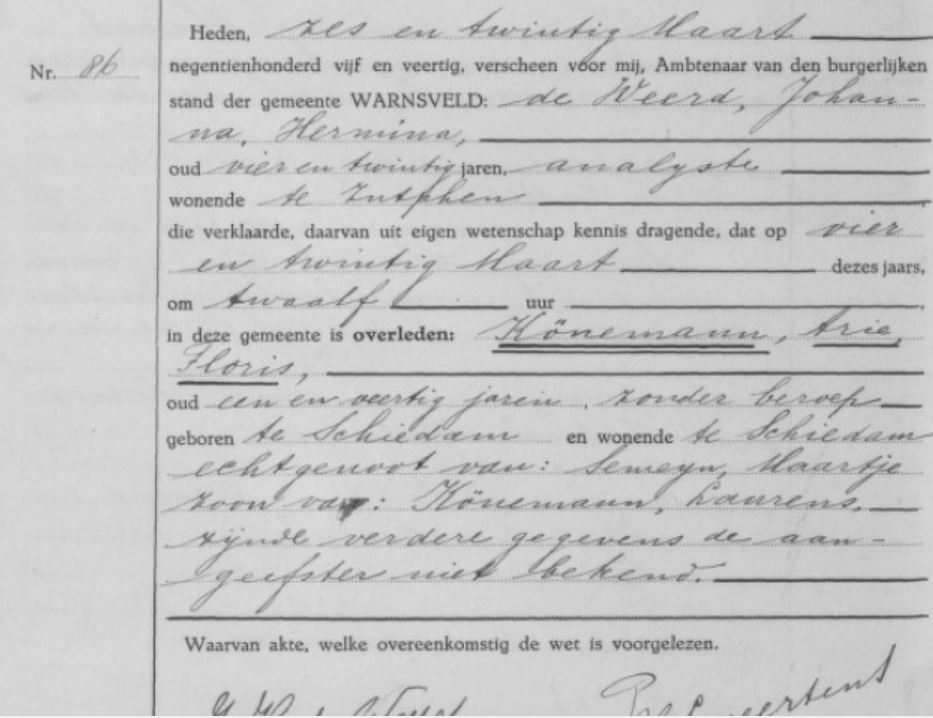 Heden, zes en twintig Maart
Nr. 86 negentienhonderd vijf en veertig, verscheen voor mij, Ambtenaar van den burgerlijken
stand der gemeente WARNSVELD: de Weerd, Johan-
na, Hermina,
oud vier en twintig jaren, analyste
wonende te Zutphen
die verklaarde, daarvan uit eigen wetenschap kennis dragende, dat op vier
en twintig Maart dezes jaars,
om twaalf uur
in deze gemeente is overleden: Könemann, Arie,
Floris,
oud een en veertig jaren, zonder beroep
geboren te Schiedam en wonende te Schiedam
echtgenoot van: Semeyn, Maartje
zoon van: Könemann, Laurens,
zijnde verdere gegevens de aan-
geefster niet bekend.
Waarvan akte, welke overeenkomstig de wet is voorgelezen.